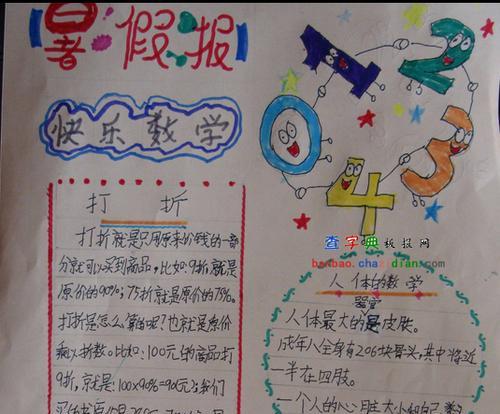 暑假报
快乐数学
1
2
3
4
0
打 折
打折就是只用原来价钱的一部
分就可以买到商品,比如:9折就是
原价的90%;75折就是原价的75%。
打折是怎么算的呢?也就是原价
乘以折数。比如:100元的商品打
9折,就是:100×90%=90元
查字典板报网
banbao.chazidian.com
人体的数学
器官
人体最大的是皮肤。
成年人全身有206块骨头,其中将近
一半在四肢。
一个人的心脏大小和自己